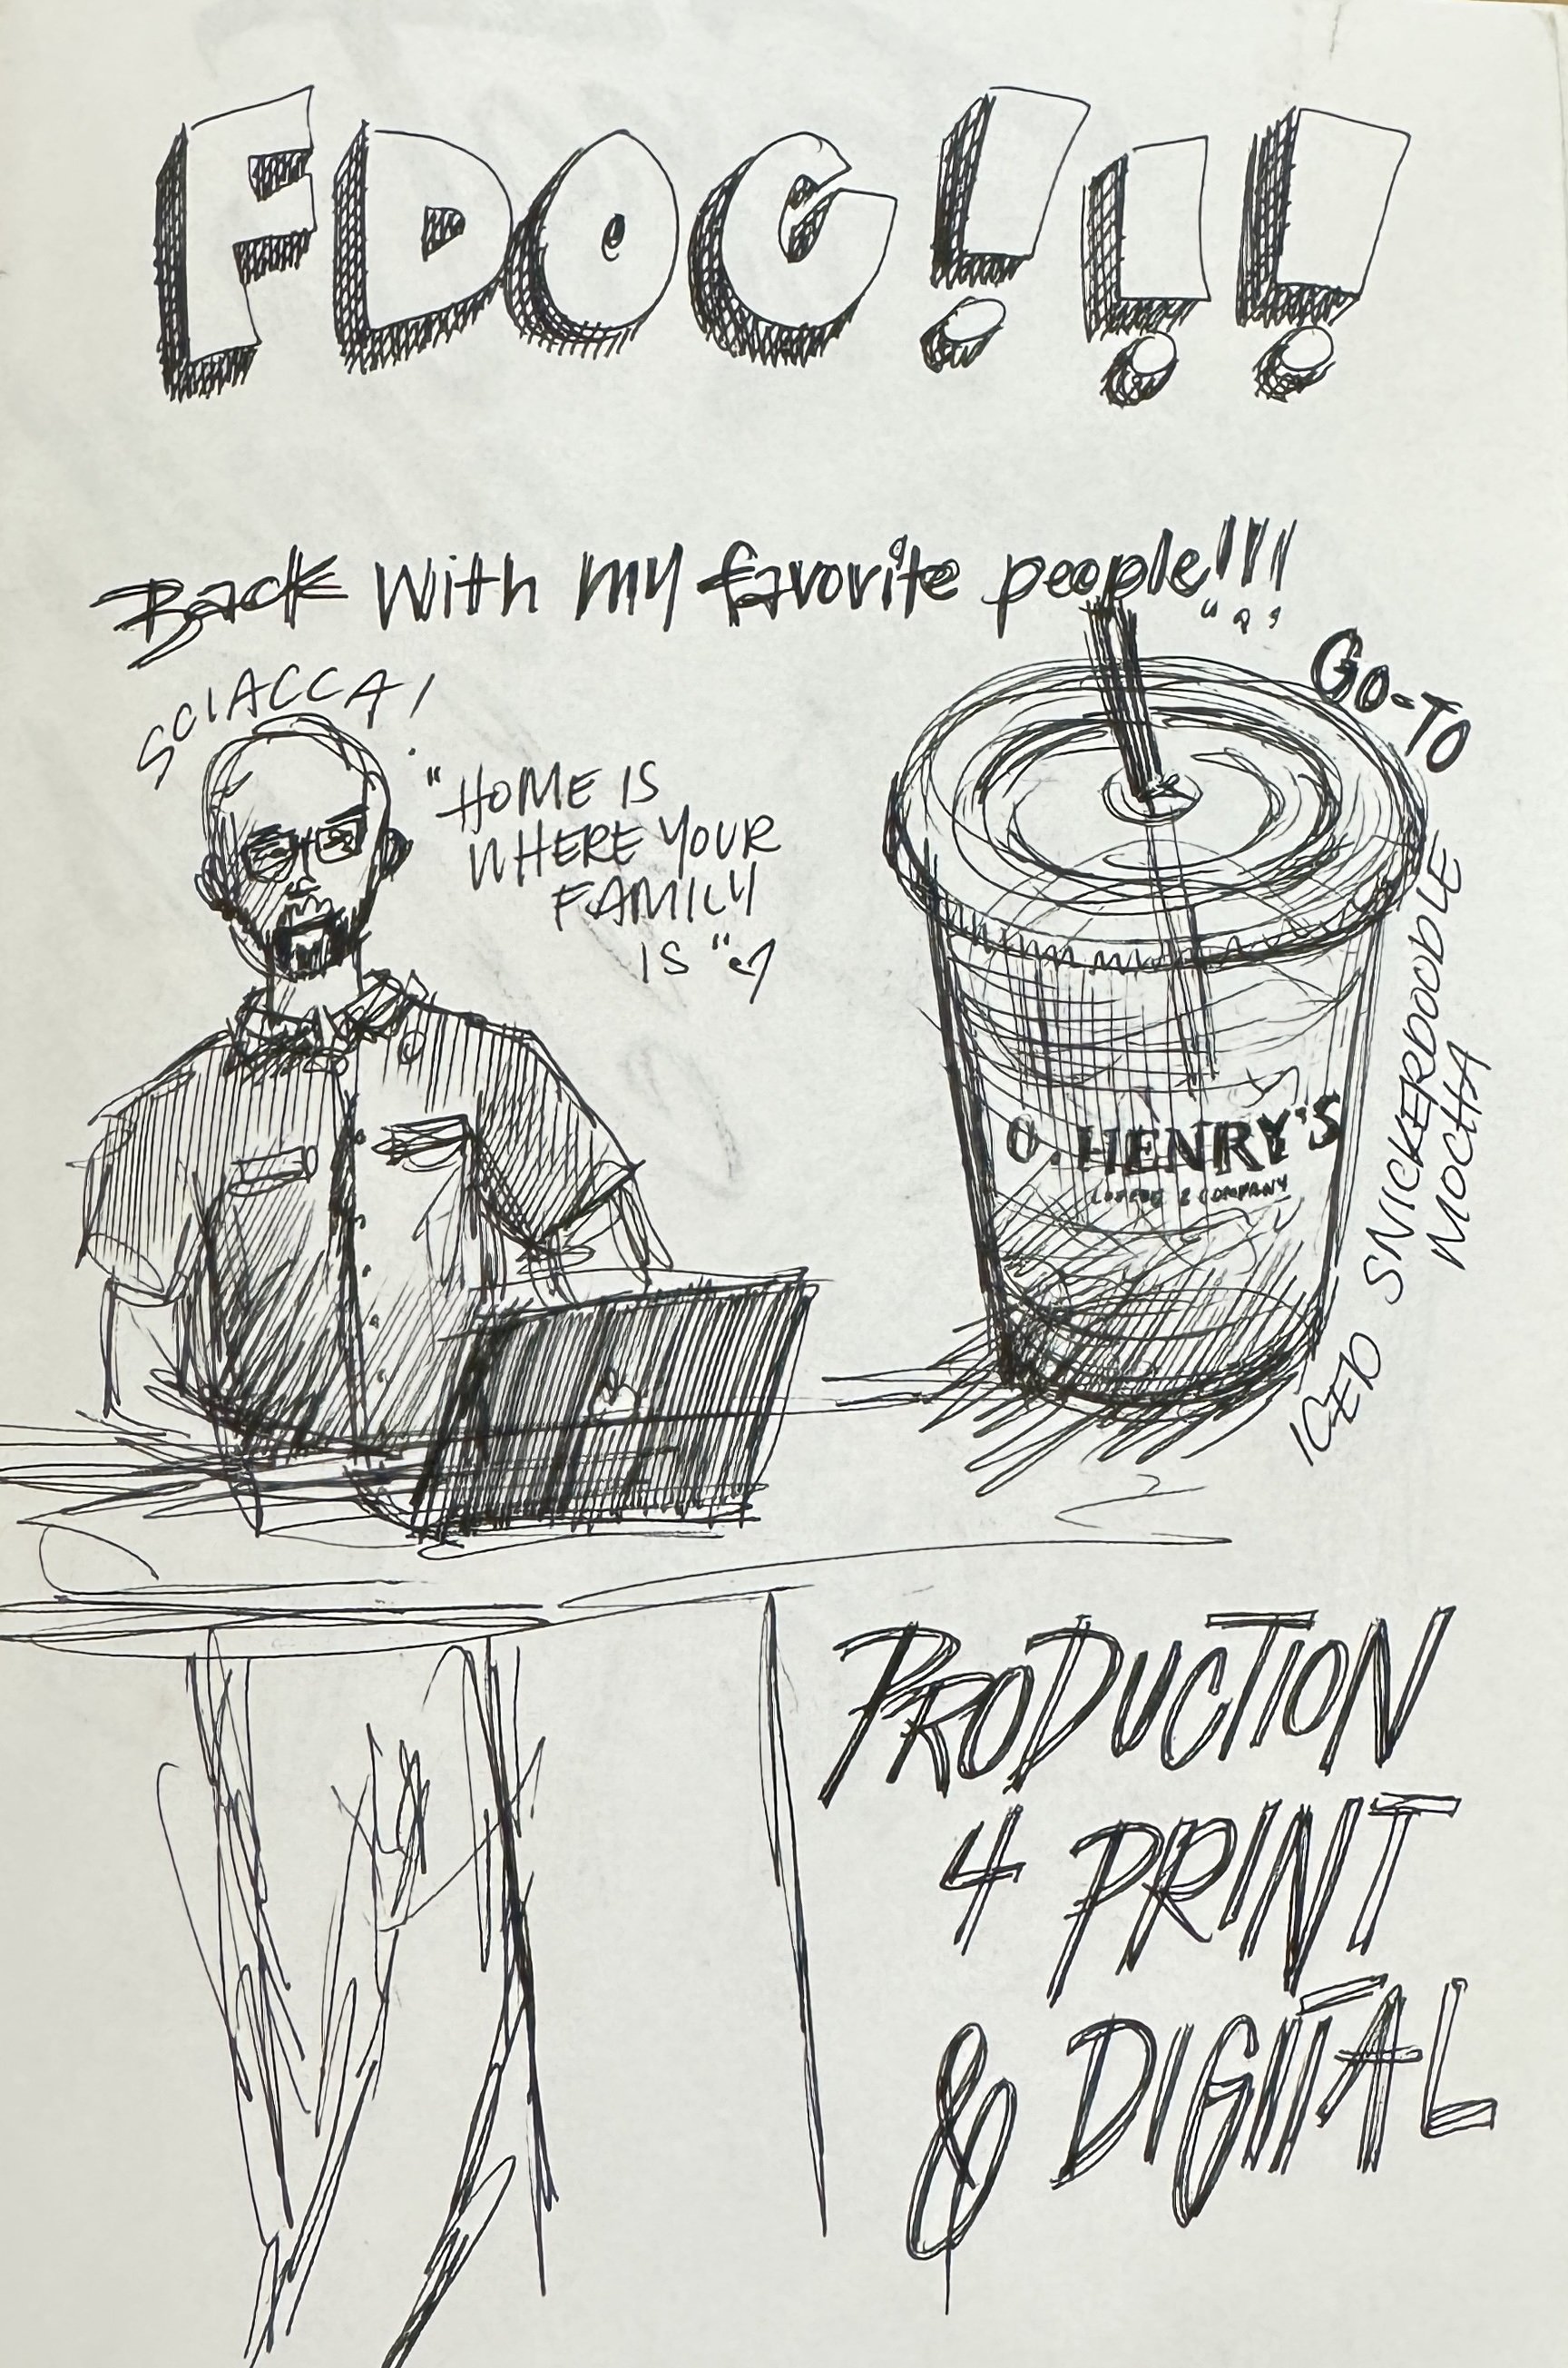 FDOC!!!
Back with my favorite people!!!
SCIACCA!
"HOME IS
WHERE YOUR
FAMILY
IS"
GO-TO
ICED SNICKERDOODLE
MOCHA
O. HENRY'S
COFFEE & COMPANY
PRODUCTION
4 PRINT
& DIGITAL